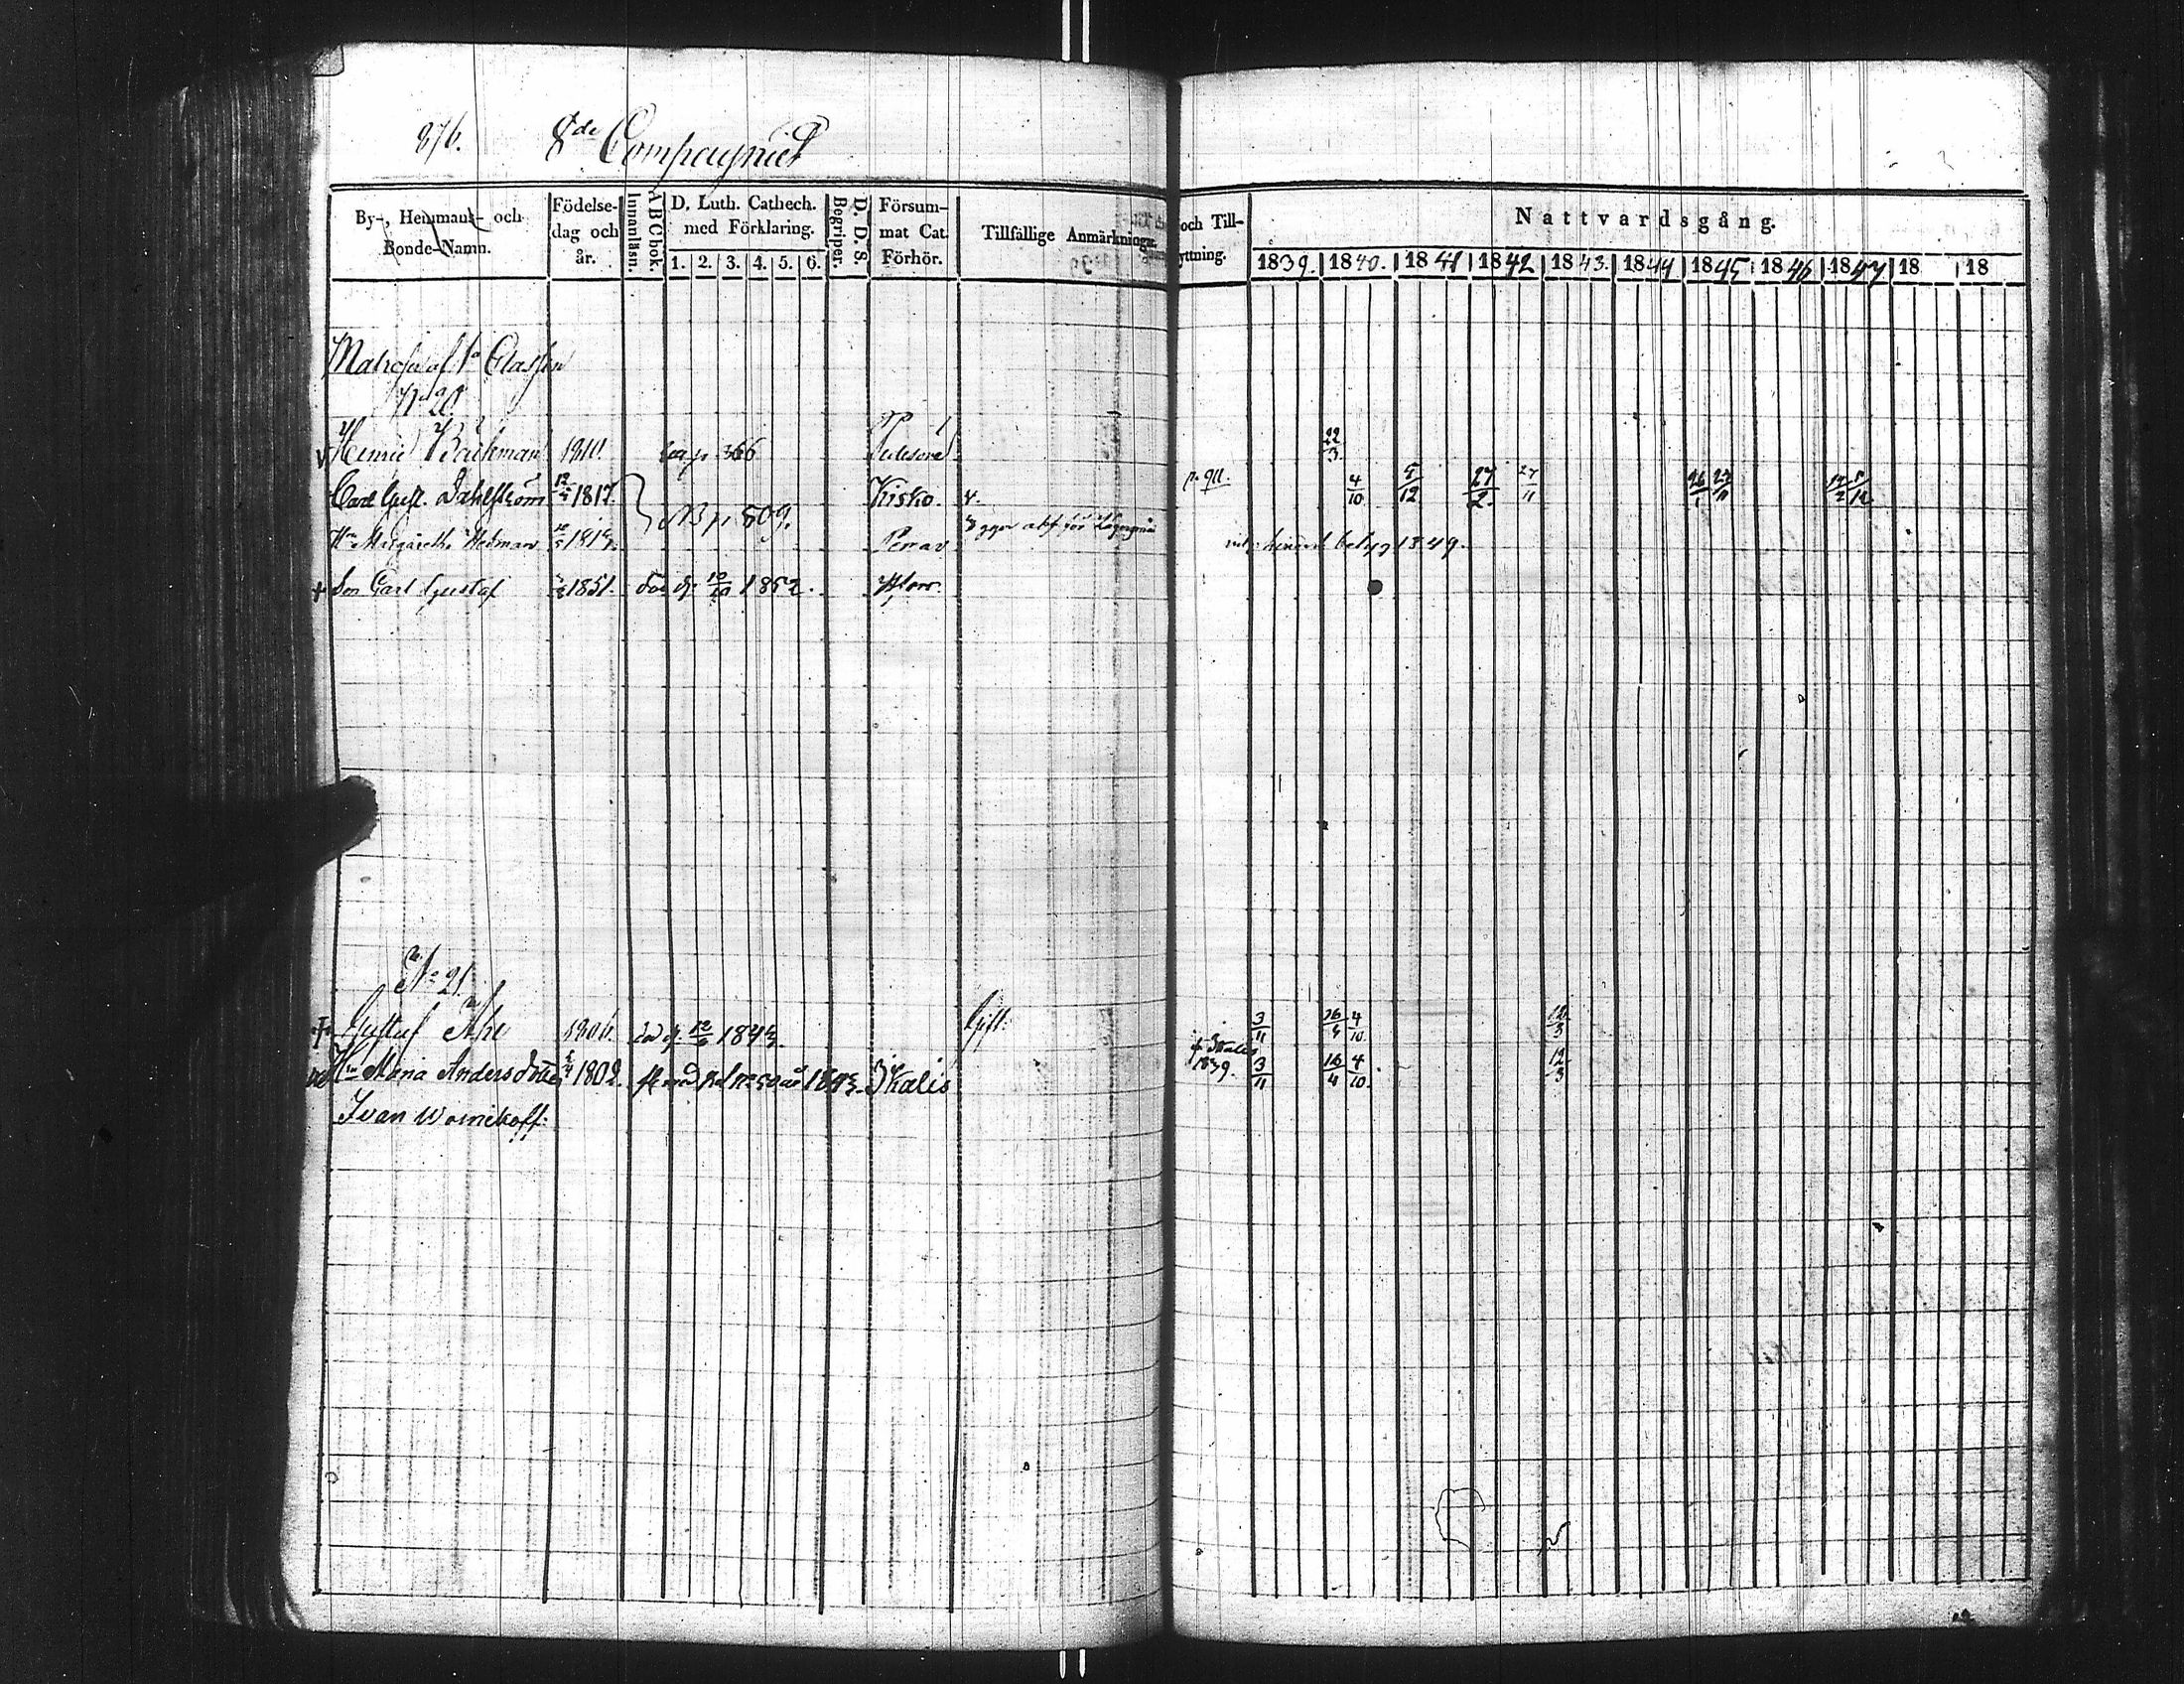 876. 8de Compagniet
By-, Hemmans- och Bonde-Namn. Födelsedag och år. Innanläsn. ABC bok. D. Luth. Cathech. med Förklaring. 1. 2. 3. 4. 5. 6. Begriper. D. D. S. Försummat Cat. Förhör. Tillfällige Anmärkningar och Till- yttning. Nattvardsgång.
1839. 1840. 1841 1842 1843. 1844 1845 1846 1847 18 18
Matroser af 1a Classen
No 20.
Henric Backman 1810. p. 366 22/3
Carl Gust. Dahlström 12/5 1817. Kisko. 4. p. 911. 4/10 5/12 27/2 27/11 26/1 27/11 14/2 5/12
Hu Margaretha Hedman 1813. NB p. 809. Pernav betyg 1849.
+ Son Carl Gustaf 1851. död d. 1852. Hfors.
No 21.
+ Gustaf 1806. död d. 1843. Gift. 3/11 16/4 4/10 12/3
Hu Maria Andersdotter 1802. 1843. Skalis fr Skalis 1839. 3/11 16/4 4/10. 12/3
Ivan Wornikoff.